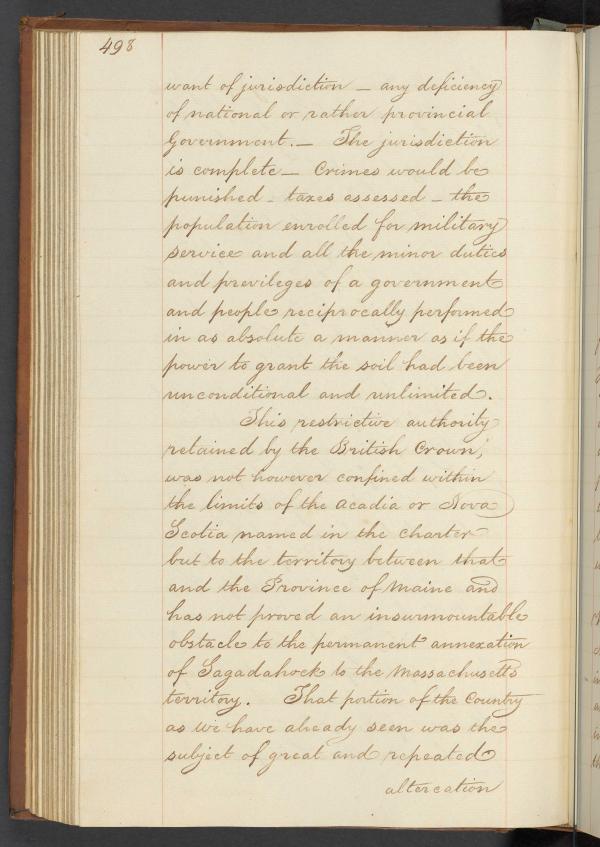 498
want of jurisdiction — any deficiency
of national or rather provincial
Government. — The jurisdiction
is complete — Crimes would be
punished - taxes assessed - the
population enrolled for military
service and all the minor duties
and previleges of a government
and people reciprocally performed
in as absolute a manner as if the
power to grant the soil had been
unconditional and unlimited.
This restrictive authority
retained by the British Crown,
was not however confined within
the limits of the Acadia or Nova
Scotia named in the Charter
but to the territory between that
and the Province of Maine and
has not proved an insurmountable
obstacle to the permanent annexation
of Sagadahock to the Massachusetts
territory. That portion of the Country
as we have already seen was the
subject of great and repeated
altercation